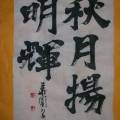 秋月揚
明輝